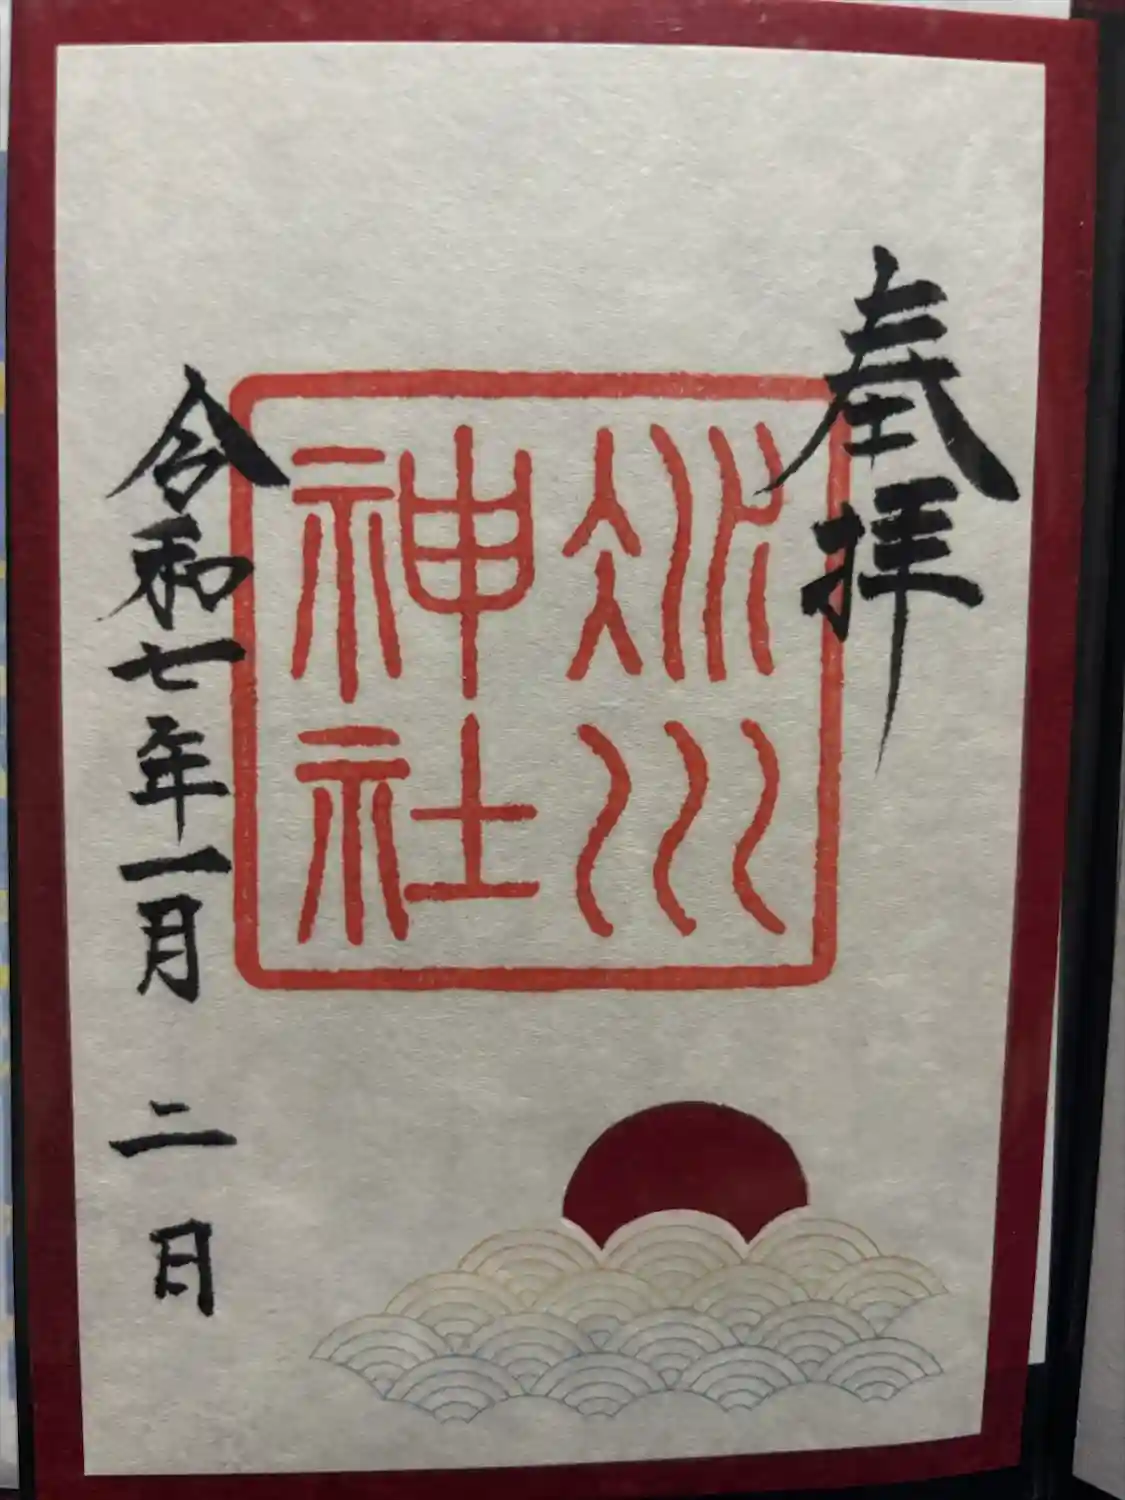 奉拝
冰川
神社
令和七年一月二日